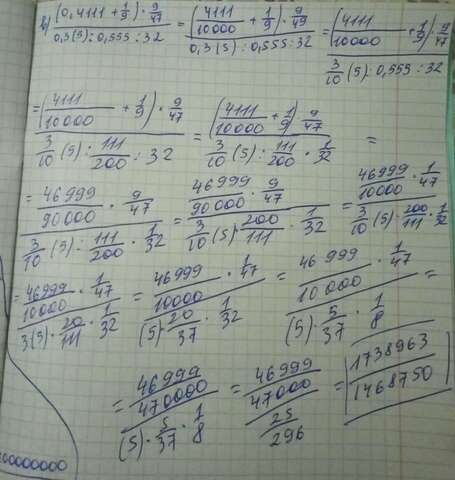 в) (0,4111 + 1/9) · 9/47 / 0,3(5) : 0,555 : 32 = (4111/10000 + 1/9) · 9/49 / 0,3(5) : 0,555 : 32 = (4111/10000 + 1/9) · 9/47 / 3/10 (5) : 0,555 : 32
= (4111/10000 + 1/9) · 9/47 / 3/10 (5) : 111/200 : 32 = (4111/10000 + 1/9) · 9/47 / 3/10 (5) : 111/200 · 1/32 =
= 46999/90000 · 9/47 / 3/10 (5) : 111/200 · 1/32 = 46999/90000 · 9/47 / 3/10 (5) · 200/111 · 1/32 = 46999/10000 · 1/47 / 3/10 (5) · 200/111 · 1/32
= 46999/10000 · 1/47 / 3(5) · 20/111 · 1/32 = 46999/10000 · 1/47 / (5) · 20/37 · 1/32 = 46999/10000 · 1/47 / (5) · 5/37 · 1/8 =
= 46999/470000 / (5) · 5/37 · 1/8 = 46999/47000 / 25/296 = 1738963/1468750
00000000